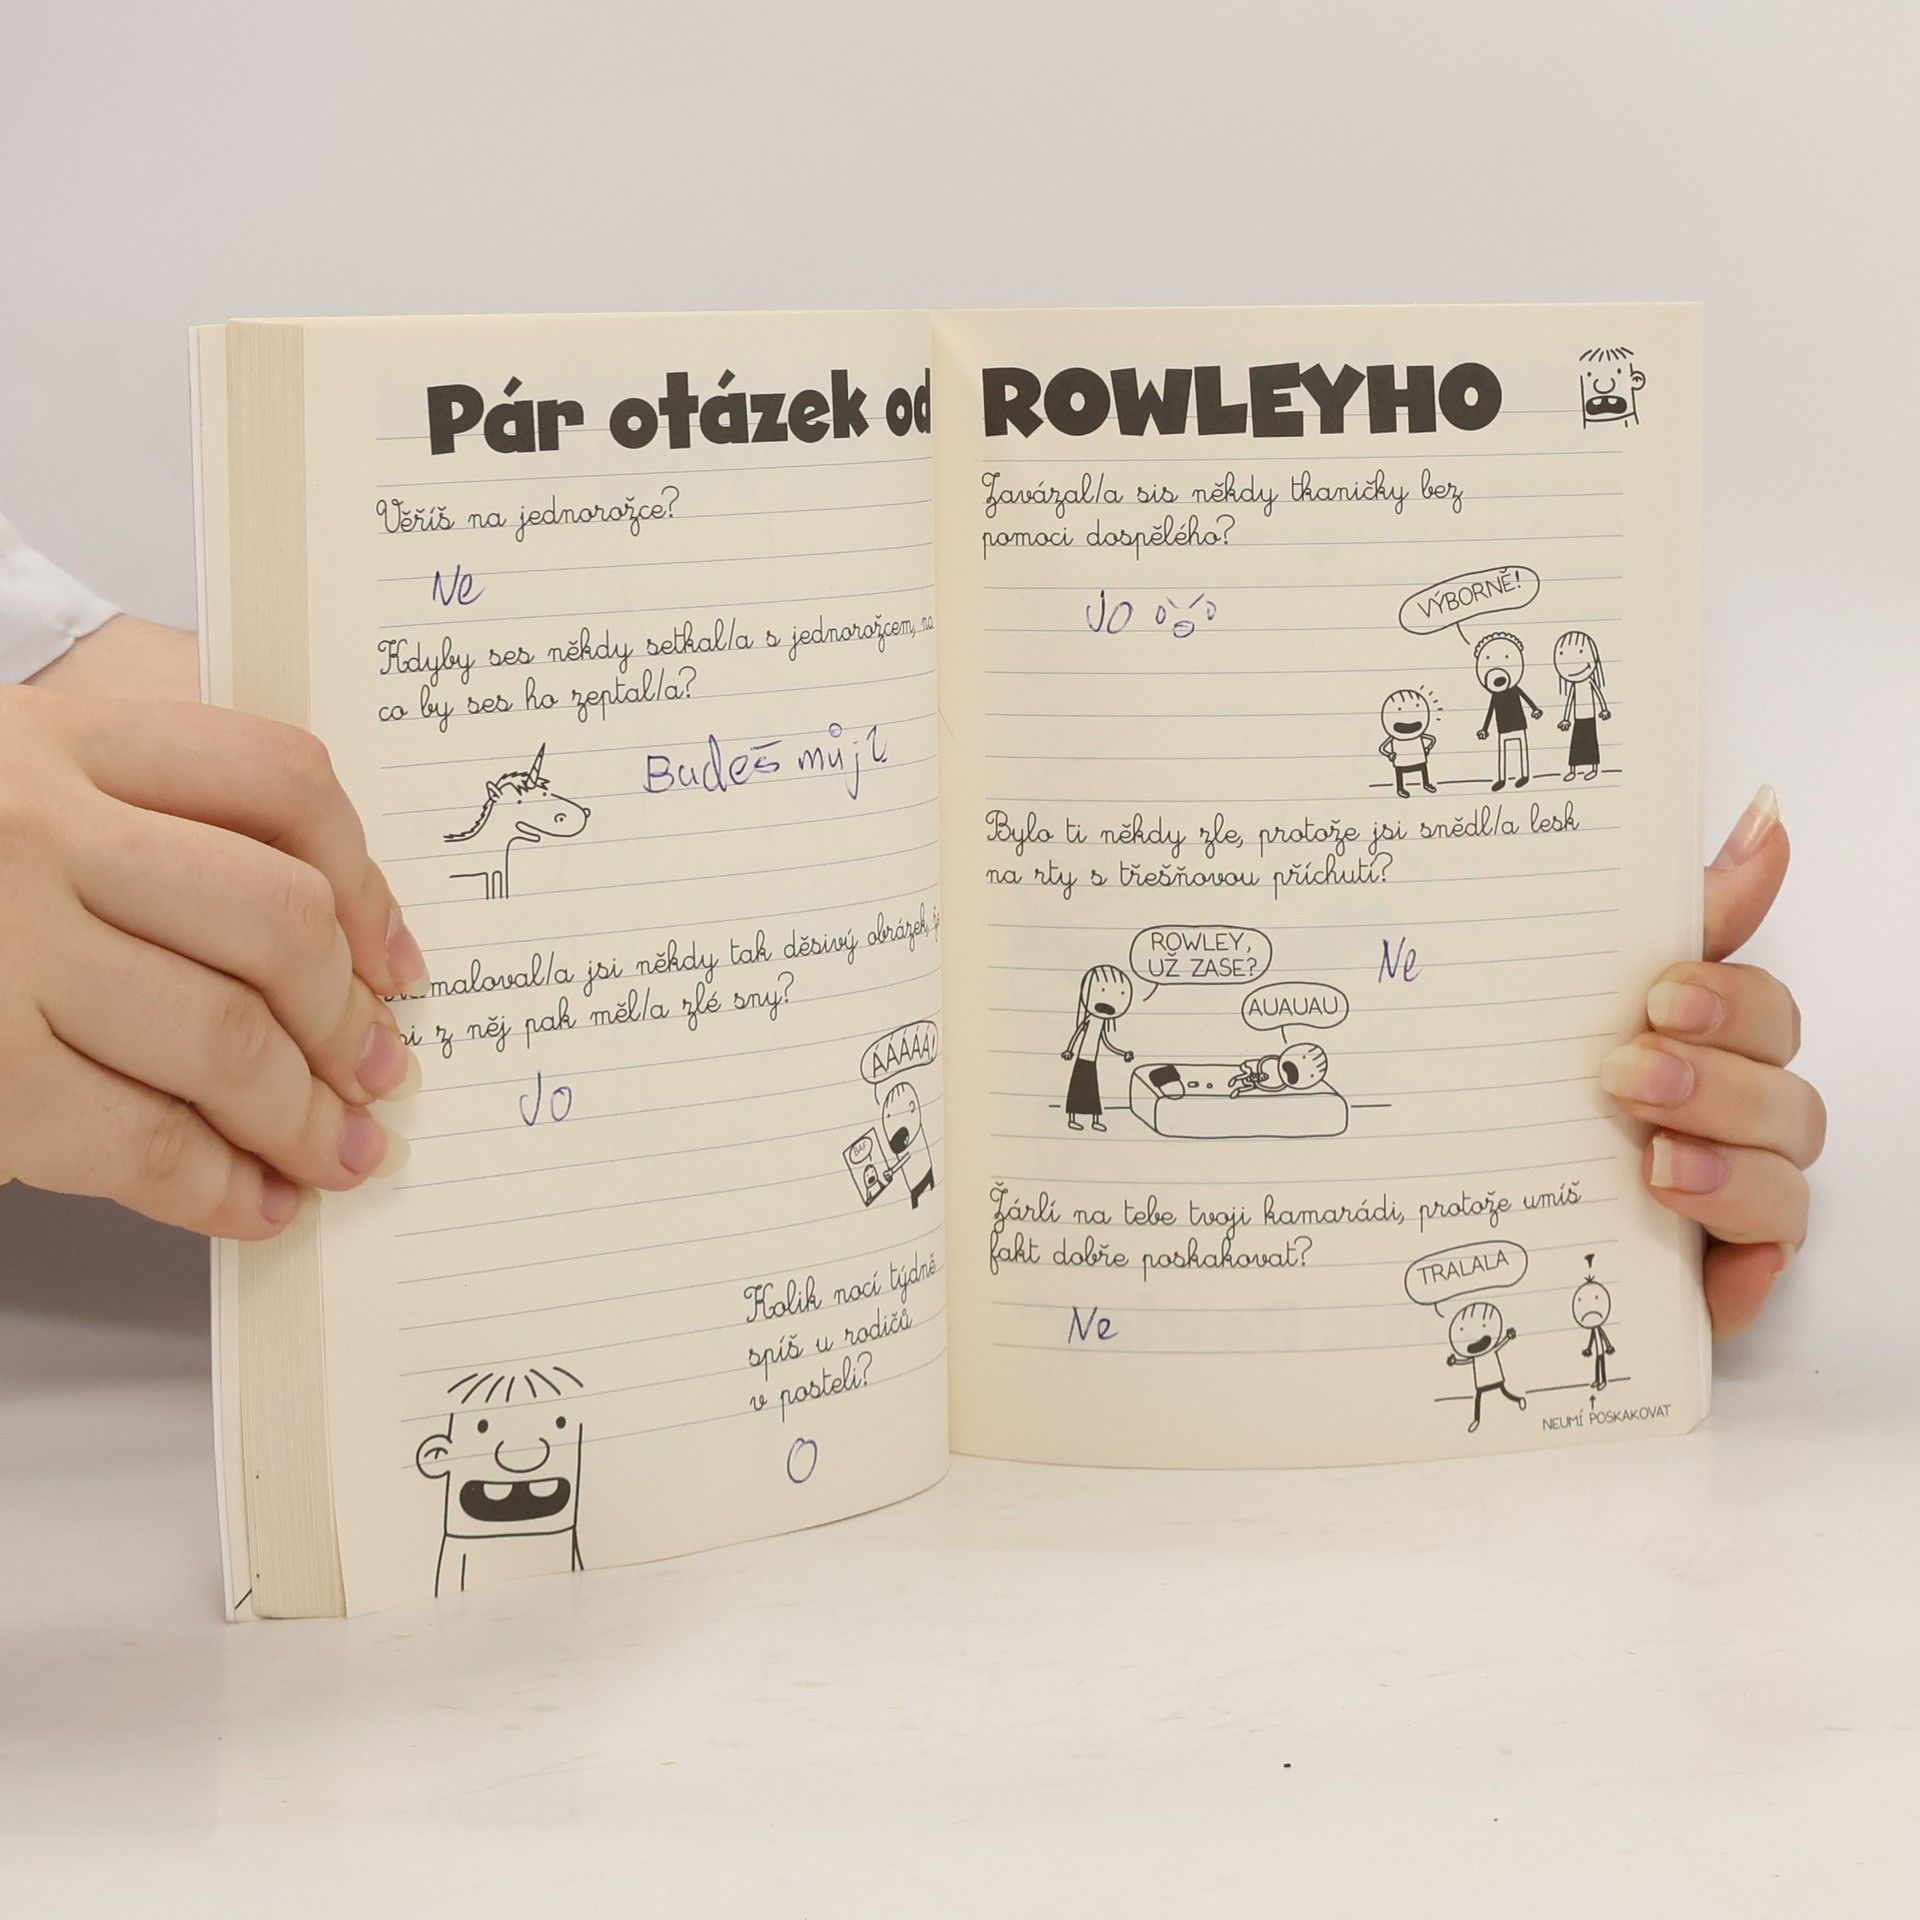 Pár otázek od ROWLEYHO
Věříš na jednorožce?
Ne
Kdyby ses někdy setkal/a s jednorožcem, na
co by ses ho zeptal/a?
Budeš můj?
maloval/a jsi někdy tak děsivý obrázek, že
si z něj pak měl/a zlé sny?
Jo
ÁÁÁÁÁ!
BAF
Kolik nocí týdně
spíš u rodičů
v posteli?
0
Zavázal/a sis někdy tkaničky bez
pomoci dospělého?
Jo
VÝBORNĚ!
Bylo ti někdy zle, protože jsi snědl/a lesk
na rty s třešňovou příchutí?
ROWLEY,
UŽ ZASE?
Ne
AUAUAU
Žárlí na tebe tvoji kamarádi, protože umíš
fakt dobře poskakovat?
TRALALA
Ne
NEUMÍ POSKAKOVAT